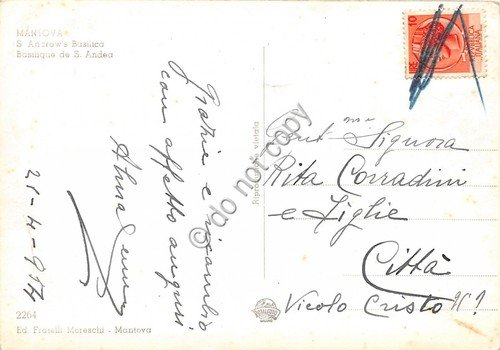 MANTOVA
S. Andrew's Basilica
Basilique de S. Andea
Grazie e ricambio
con affetto auguri
21-4-954
2264
Ed. Fratelli Moreschi - Mantova
Riproduzione vietata
do not copy
LIRE 10
REPUBBLICA
ITALIANA
Gent.me Signora
Rita Corradini
e Figlie
Città
Vicolo Cristo N°?